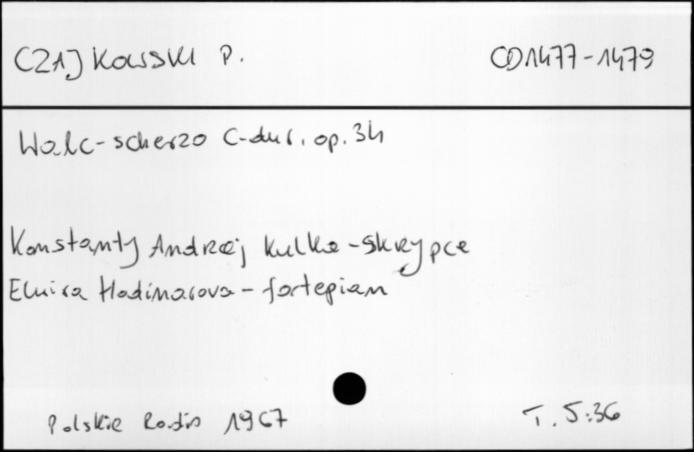 CZAJKOWSKI P. CD1477-1479
Walc-scherzo C-dur, op. 34
Konstanty Andrzej Kulka - skrzypce
Elwira Hodinarova - fortepian
Polskie Radio 1967 T. 5:36